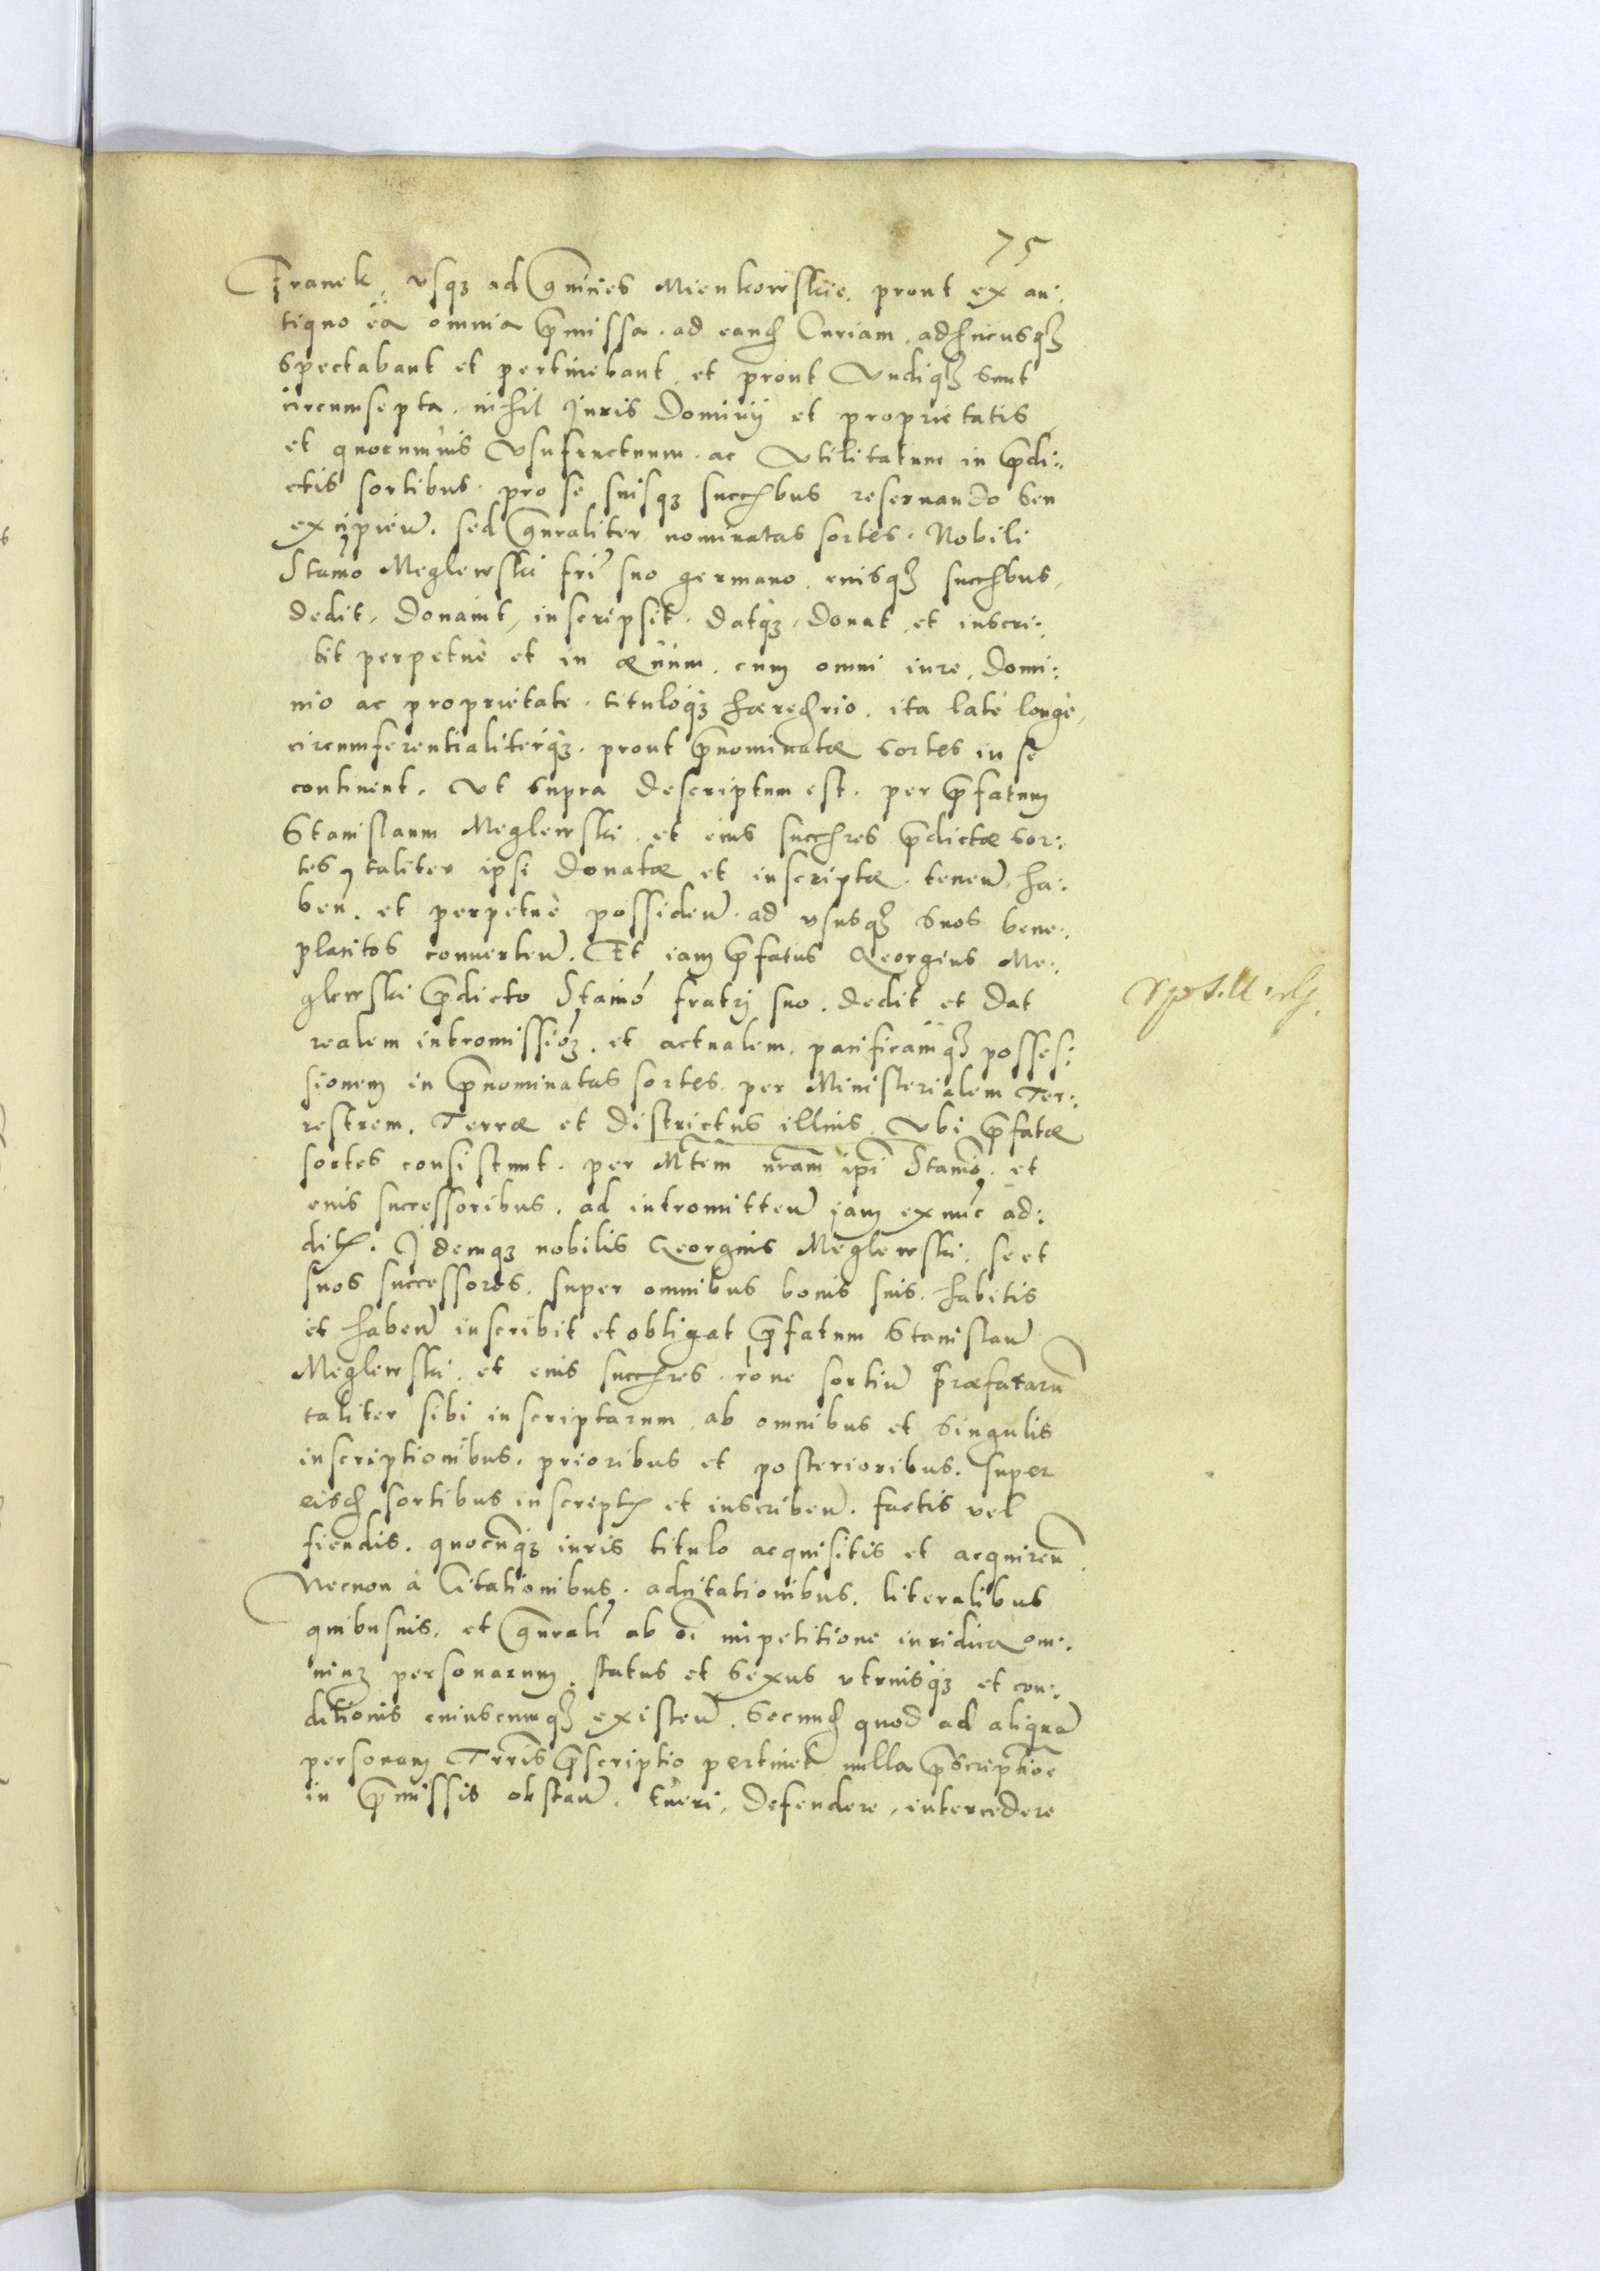 75
Franek, vsq3 ad Granicies Mienkowskie, prout ex an:
tiquo ea omnia p̃missa, ad eand Curiam, adhucusq3
spectabant et pertinebant, et prout Vndiq3 sunt
circumsepta, nihil Juris Dominij et proprietatis
et quorumuis Vsufructuum, ac Vtilitatum in p̃di:
ctis sortibus, pro se suisq3 succribus reseruando seu
excipien̄. sed gñraliter nominatas sortes. Nobili
Stanō Meglewski fri suo germano, eiusq3 succribus,
dedit, donauit, inscripsit, datq3, donat, et inscri:
bit perpetuè et in æuum, cum omni iure, domi:
nio ac proprietate, tituloq3 hæredrio, ita latè longè,
circumferentialiterq3, prout p̃nominatæ sortes in se
continent, Vt supra descriptum est. per p̃fatum
Stanislaum Meglewski, et eius succres p̃dictæ sor:
tes, taliter ipsi donatæ et inscriptæ, tenen̄, ha:
ben̄, et perpetuè possiden̄, ad vsusq3 suos bene:
placitos conuerten̄. Et iam p̃fatus Georgius Me:
glewski p̃dicto Stanō fratrj suo, dedit et dat
realem intromissiō3, et actualem, pacificamq3 posses:
sionem in p̃nominatas sortes, per Ministerialem Ter:
restrem, Terræ et districtus illius, Vbi p̃fatæ
sortes consistunt, per Mt̄em nrām ipi Stanō, et
eius successoribus, ad intromitten̄ iam ex nūc ad:
dit. Idemq3 nobilis Georgius Meglewski, se et
suos successores, super omnibus bonis suis, habitis
et haben̄ inscribit et obligat p̃fatum Stanislaū
Meglewski, et eius succres, rōne sortiū præfatarū
taliter sibi inscriptarum, ab omnibus et singulis
inscriptionibus, prioribus et posterioribus, super
eisd sortibus inscript et inscriben̄, factis vel
fiendis, quocunq3 iuris titulo acquisitis et acquiren̄
Necnon à Citationibus, adcitationibus, literalibus
quibusuis, et gñrali ab oī impetitione iuridica om:
nium personarum, status et sexus vtriusq3 et con:
ditionis cuiuscumq3 existen̄. Secund quod ad aliquā
personam Trr̃is p̃scriptio pertinet nulla p̃scriptiōe
in p̃missis obstan̄. tueri, defendere, intercedere